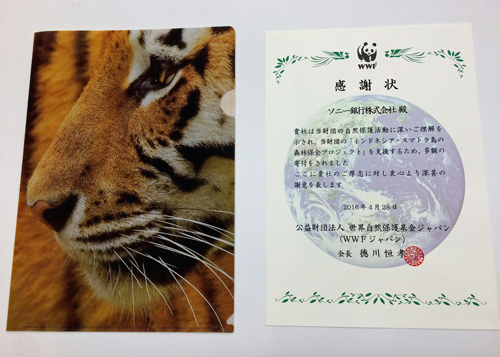 WWF
感謝状
ソニー銀行株式会社 殿
貴社は当財団の自然保護活動に深いご理解を
示され、当財団の「インドネシア・スマトラ島の
森林保全プロジェクト」を支援するため、多額の
寄付をされました
ここに貴社のご厚志に対し衷心より深甚の
謝意を表します
2016年4月28日
公益財団法人 世界自然保護基金ジャパン
(WWFジャパン)
会長 徳川恒孝